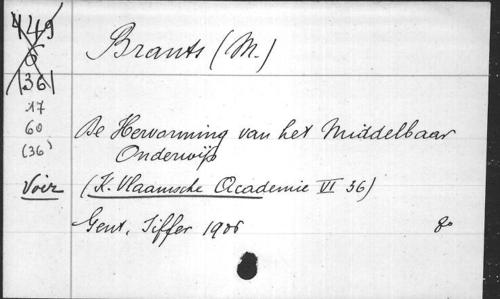 449
6
(36)
Brants (M.)
17
60
(36)
De Hervorming van het Middelbaar
Onderwijs
Voir (K. Vlaamsche Academie VI 36)
Gent, Siffer 1906 8o